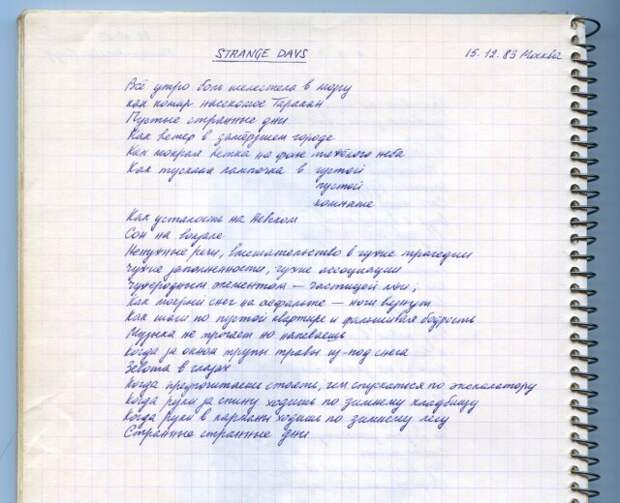 STRANGE DAYS
15.12.83 Москва
Всё утро боль шелестела в мозгу
как комар насекомое Таракан
Пустые странные дни
Как ветер в замёрзшем городе
Как мокрая ветка на фоне тяжёлого неба
Как тусклая лампочка в густой
пустой
комнате
Как усталость на Невском
Сон на вокзале
Ненужные речи, вмешательство в чужие трагедии
чужие заполненности, чужие ассоциации
Чужеродным элементом — частицей лжи,
Как мокрый снег на асфальте — ноги
Как шаги по пустой квартире и фальшивая бодрость
Музыка не трогает но напеваешь
Когда за окном трупы травы из-под снега
Зевота в глазах
Когда предпочитаешь стоять, чем спускаться по эскалатору
Когда руки за спину ходишь по зимнему кладбищу
Когда руки в карманы ходишь по зимнему лесу
Странные странные дни